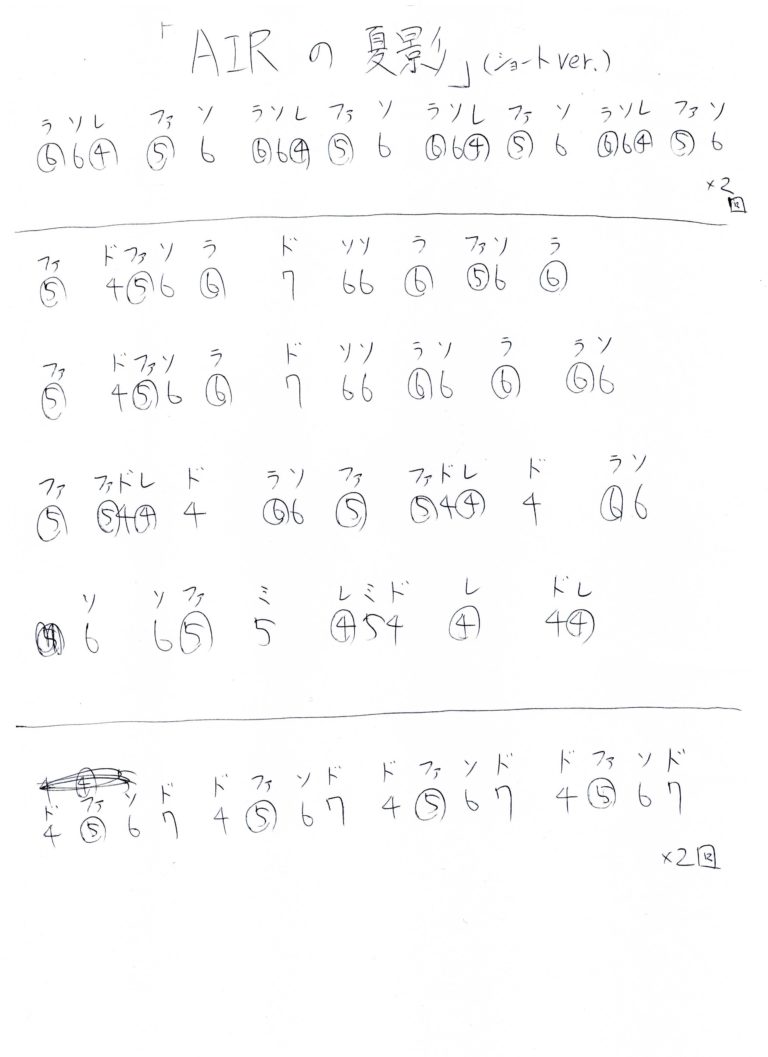 「AIRの夏影」(ショートver.)
ラソレ ファ ソ ラソレ ファ ソ ラソレ ファ ソ ラソレ ファ ソ
⑥6④ ⑤ 6 ⑥6④ ⑤ 6 ⑥6④ ⑤ 6 ⑥6④ ⑤ 6
×2回
ファ ドファソ ラ ド ソソ ラ ファソ ラ
⑤ 4⑤6 ⑥ 7 66 ⑥ ⑤6 ⑥
ファ ドファソ ラ ド ソソ ラソ ラ ラソ
⑤ 4⑤6 ⑥ 7 66 ⑥6 ⑥ ⑥6
ファ ファドレ ド ラソ ファ ファドレ ド ラソ
⑤ ⑤4④ 4 ⑥6 ⑤ ⑤4④ 4 ⑥6
ソ ソファ ミ レミド レ ドレ
6 6⑤ 5 ④54 ④ 4④
ド ファ ソ ド ド ファ ソ ド ド ファ ソ ド ド ファ ソ ド
4 ⑤ 6 7 4 ⑤ 6 7 4 ⑤ 6 7 4 ⑤ 6 7
×2回